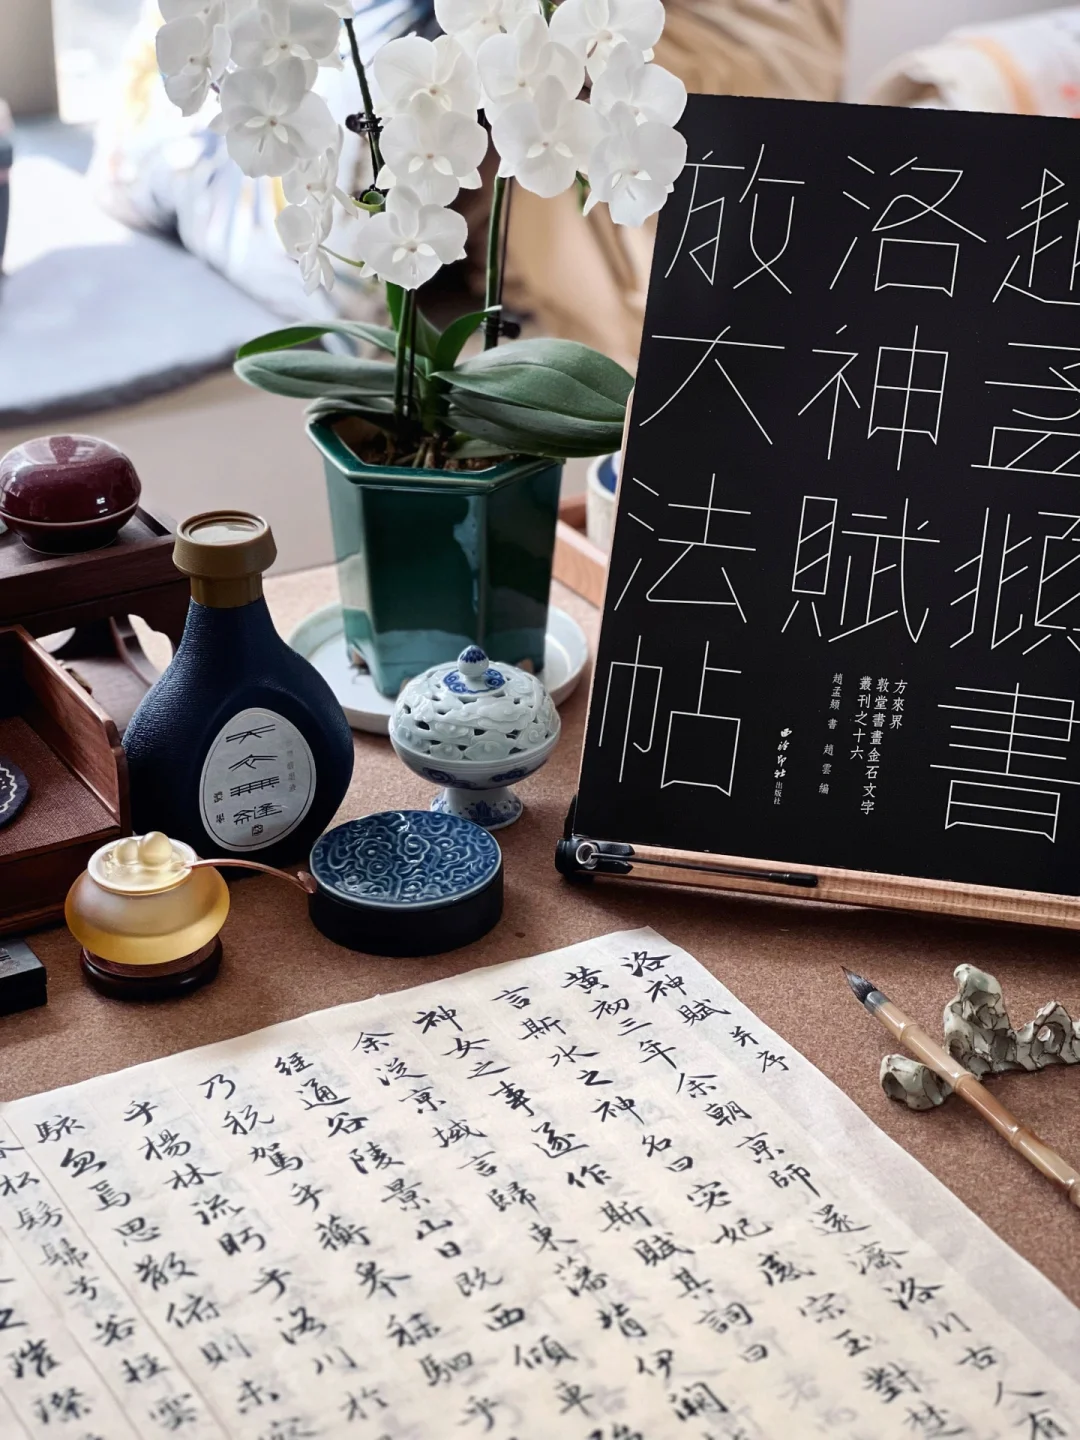 趙孟頫書
洛神賦
放大法帖
方來界
敦堂書畫金石文字
叢刊之十六
趙孟頫 書 趙雲 編
西泠印社出版社
天衣無縫
洛神賦 并序
黃初三年余朝京師還濟洛川古人有
言斯水之神名曰宓妃感宗玉對楚
神女之事遂作斯賦其詞曰
余從京域言歸東藩背伊闕
經通谷陵景山日既西傾車
乃稅駕乎蘅皋秣駟乎
乎楊林流眄乎洛川於
駭忽焉思散俯則未